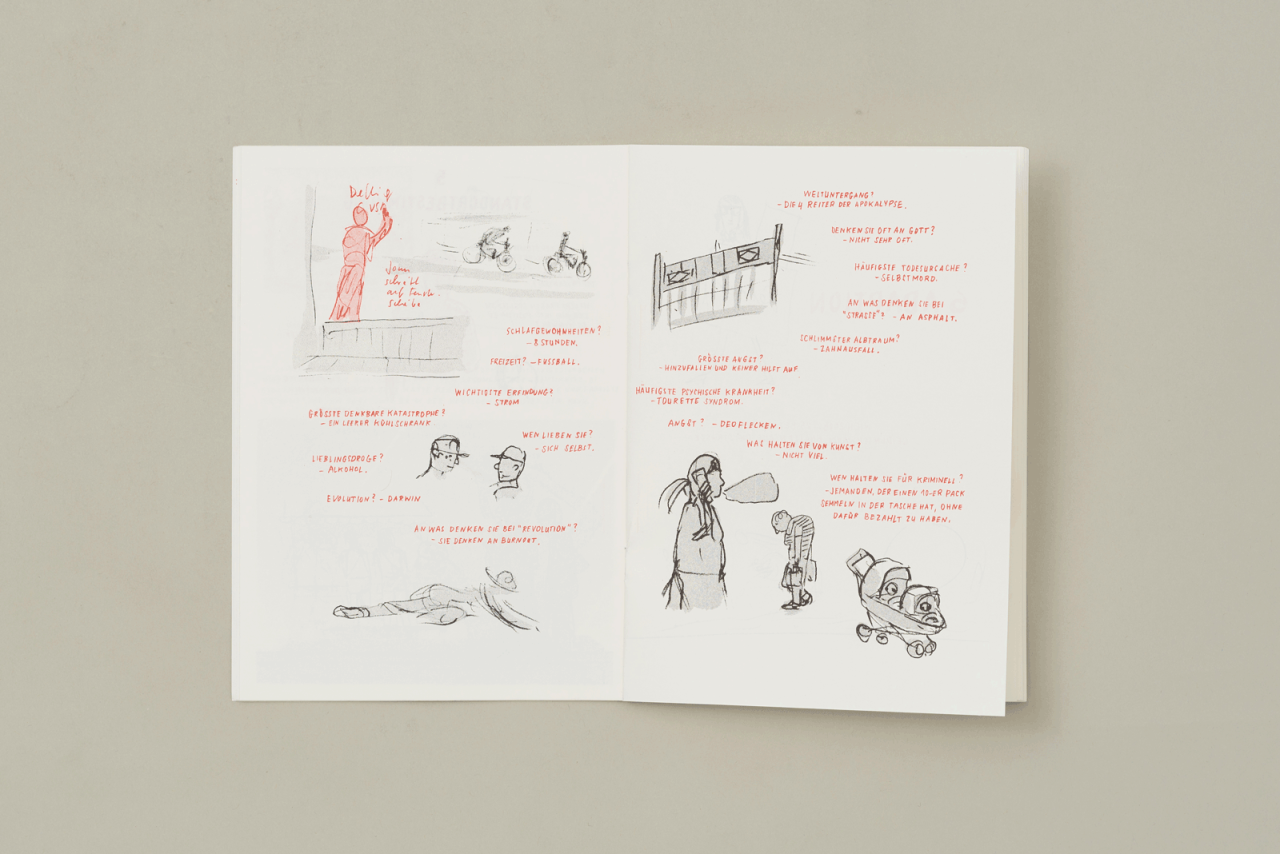 schreibt
auf Fenster-
scheibe
SCHLAFGEWOHNHEITEN?
- 8 STUNDEN.
FREIZEIT? - FUSSBALL.
WICHTIGSTE ERFINDUNG?
- STROM
GRÖSSTE DENKBARE KATASTROPHE?
- EIN LEERER KÜHLSCHRANK
WEN LIEBEN SIE?
- SICH SELBST.
LIEBLINGSDROGE?
- ALKOHOL.
EVOLUTION? - DARWIN
AN WAS DENKEN SIE BEI "REVOLUTION"?
- SIE DENKEN AN BURNOUT.
WELTUNTERGANG?
- DIE 4 REITER DER APOKALYPSE.
DENKEN SIE OFT AN GOTT?
- NICHT SEHR OFT.
HÄUFIGSTE TODESURSACHE?
- SELBSTMORD.
AN WAS DENKEN SIE BEI
"STRASSE"? - AN ASPHALT.
SCHLIMMSTER ALBTRAUM?
- ZAHNAUSFALL.
GRÖSSTE ANGST?
- HINZUFALLEN UND KEINER HILFT AUF
HÄUFIGSTE PSYCHISCHE KRANKHEIT?
- TOURETTE SYNDROM.
ANGST? - DEOFLECKEN.
WAS HALTEN SIE VON KUNST?
- NICHT VIEL.
WEN HALTEN SIE FÜR KRIMINELL?
- JEMANDEN, DER EINEN 10-ER PACK
SEMMELN IN DER TASCHE HAT, OHNE
DAFÜR BEZAHLT ZU HABEN.